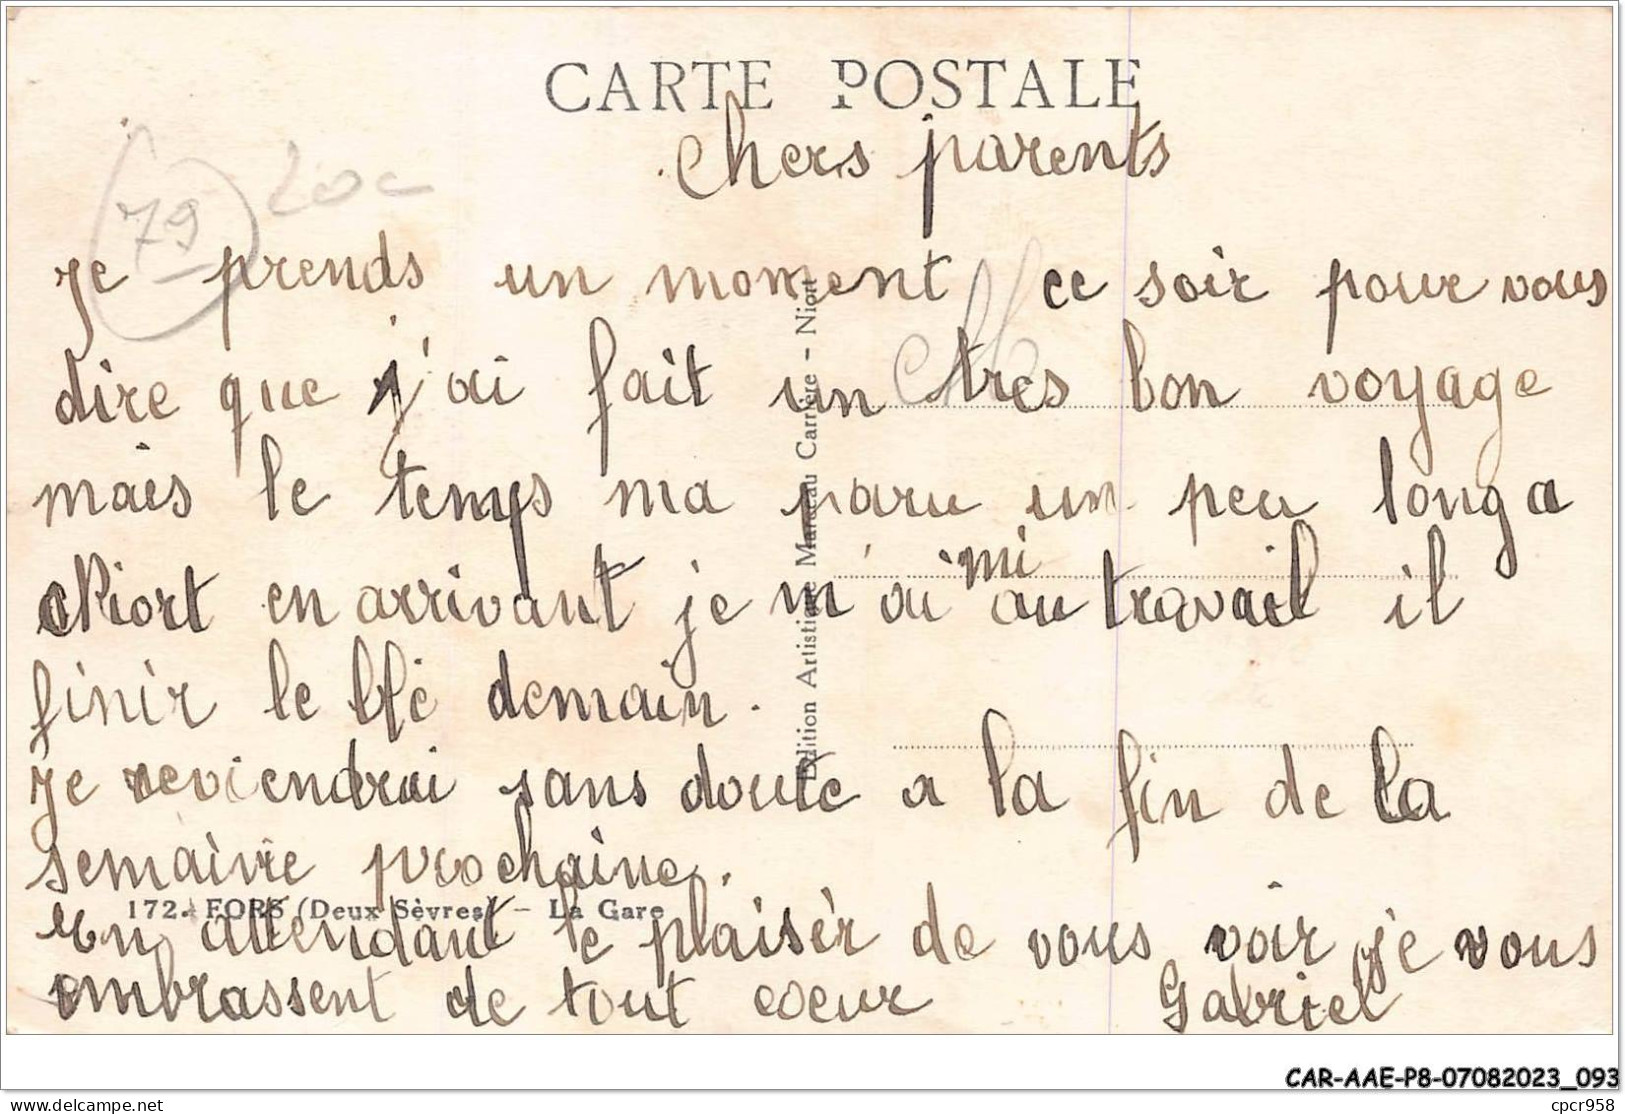 CARTE POSTALE
chers parents
79 20c
je prends un moment ce soir pour vous
dire que j'ai fait un tres bon voyage
mais le temps ma paru un peu long a
Niort en arrivant je m'ai mi au travail il
finir le blé demain.
je reviendrai sans doute a la fin de la
semaine prochaine.
172. FORS (Deux Sèvres) - La Gare
en attendant le plaisir de vous voir je vous
embrassent de tout coeur Gabriel
Edition Artistique Marceau Carrière - Niort
CAR-AAE-P8-07082023_093
www.delcampe.net
cpcr958